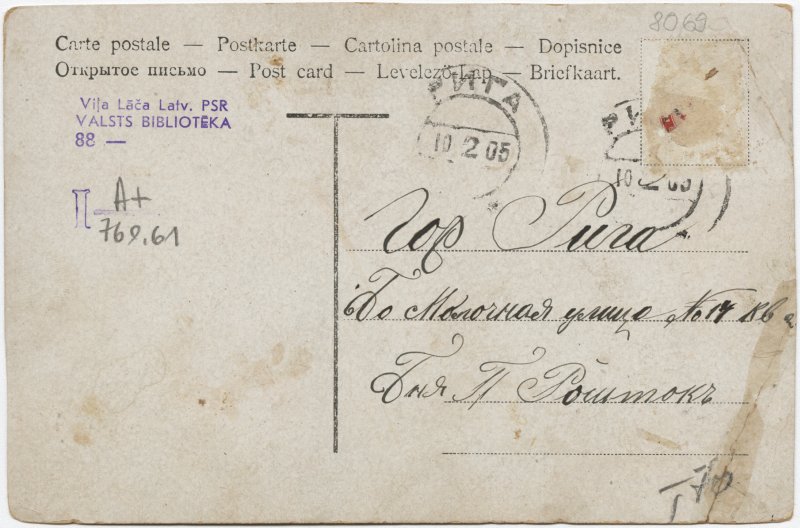 8069
Carte postale — Postkarte — Cartolina postale — Dopisnice
Открытое письмо — Post card — Levelező-Lap — Briefkaart.
Viļa Lāča Latv. PSR
VALSTS BIBLIOTĒKA
88 —
РИГА
10 2 05
РИ
10 2 05
A+
769.61
Гор Рига
Бо Молочная улица № 14 кв 2
Бня П Роштокъ